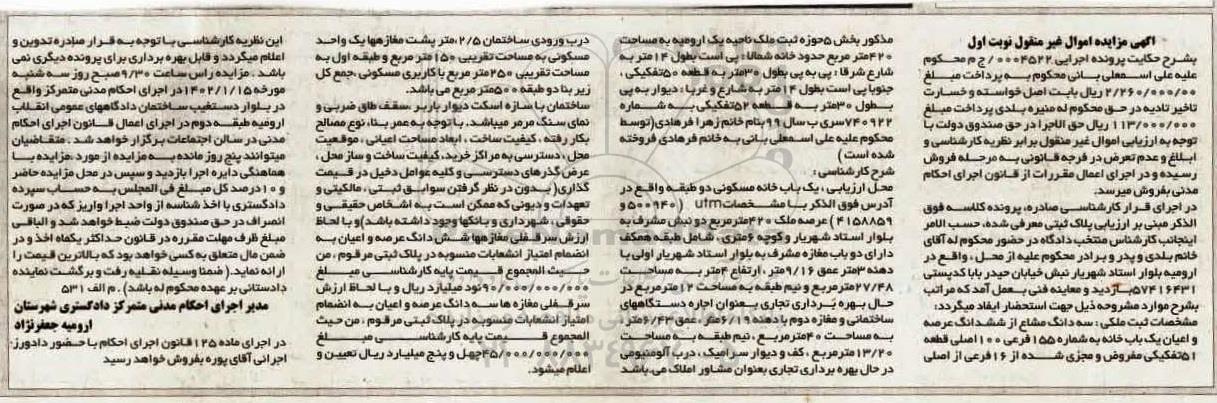 آگهی مزایده اموال غیر منقول نوبت اول
بشرح حکایت پرونده اجرایی ۰۰۰۴۵۲۲ / ج م محکوم
علیه علی اسمعلی بیانی محکوم به پرداخت مبلغ
۲/۲۶۰/۰۰۰/۰۰۰ ریال بابت اصل خواسته و خسارت
تاخیر تادیه در حق محکوم له منیره بلدی پرداخت مبلغ
۱۱۳/۰۰۰/۰۰۰ ریال حق الاجرا در حق صندوق دولت با
توجه به ارزیابی اموال غیر منقول برابر نظریه کارشناسی و
ابلاغ و عدم تعرض در فرجه قانونی به مرحله فروش
رسیده و در اجرای اعمال مقررات از قانون اجرای احکام
مدنی بفروش میرسد.
در اجرای قرار کارشناسی صادره، پرونده کلاسه فوق
الذکر مبنی بر ارزیابی پلاک ثبتی معرفی شده، حسب الامر
اینجانب کارشناس منتخب دادگاه در حضور محکوم له آقای
خانم بلدی و پدر و برادر محکوم علیه از محل، واقع در
ارومیه بلوار استاد شهریار نبش خیابان حیدر بابا کدپستی
۵۷۴۱۶۴۳۱ بازدید و معاینه فنی بعمل آمد که مراتب
بشرح موارد مشروحه ذیل جهت استحضار ایفاد میگردد:
مشخصات ثبت ملکی: سه دانگ مشاع از ششدانگ عرصه
و اعیان یک باب خانه به شماره ۱۵۵ فرعی ۱۰۰ اصلی قطعه
۵۱ تفکیکی مفروض و مجزی شده از ۱۶ فرعی از اصلی
مذکور بخش ۵ حوزه ثبت ملک ناحیه یک ارومیه به مساحت
۴۲۰ متر مربع حدود خانه شمالا: پی است بطول ۱۴ متر به
شارع شرقا: پی به پی بطول ۳۰ متر به قطعه ۵۰ تفکیکی،
جنوبا پی است بطول ۱۴ متر به شارع و غربا: دیوار به پی
بطول ۳۰ متر به قطعه ۵۲ تفکیکی به شماره
۷۴۰۹۲۲ سری ب سال ۹۹ بنام خانم زهرا فرهادی (توسط
محکوم علیه علی اسمعلی بانی به خانم فرهادی فروخته
شده است)
شرح کارشناسی:
محل ارزیابی، یک باب خانه مسکونی دو طبقه واقع در
آدرس فوق الذکر با مشخصات utm (۵۰۰۹۴۰ و
۴۱۵۸۸۵۹) عرصه ملک ۴۲۰ مترمربع دو نبش مشرف به
بلوار استاد شهریار و کوچه ۶ متری، شامل طبقه همکف
دارای دو باب مغازه مشرف به بلوار استاد شهریار اولی با
دهنه ۳ متر عمق ۹/۱۶ متر، ارتفاع ۴ متر به مساحت
۲۷/۴۸ مترمربع و نیم طبقه به مساحت ۱۲ مترمربع در
حال بهره برداری تجاری بعنوان اجاره دستگاههای
ساختمانی و مغازه دوم با دهنه ۶/۱۹ متر، عمق ۶/۴۳ متر،
به مساحت ۴۰ مترمربع، نیم طبقه به مساحت
۱۳/۲۰ مترمربع، کف و دیوار سرامیک، درب آلومنیومی
در حال بهره برداری تجاری بعنوان مشاور املاک می باشد
درب ورودی ساختمان ۲/۵ متر، پشت مغازها یک واحد
مسکونی به مساحت تقریبی ۱۵۰ متر مربع و طبقه اول به
مساحت تقریبی ۲۵۰ متر مربع با کاربری مسکونی، جمع کل
زیر بنا دو طبقه ۵۰۰ متر مربع می باشد.
ساختمان با سازه اسکت دیوار باربر، سقف طاق ضربی و
نمای سنگ مرمر میباشد. با توجه به عمر بنا، نوع مصالح
بکار رفته، کیفیت ساخت، ابعاد مساحت اعیانی، موقعیت
محل، دسترسی به مراکز خرید، کیفیت ساخت و ساز محل،
عرض گذرهای دسترسی و کلیه عوامل دخیل در قیمت
گذاری (بدون در نظر گرفتن سوابق ثبتی، مالکیتی و
تعهدات و دیونی که ممکن است به اشخاص حقیقی و
حقوقی، شهرداری و بانکها وجود داشته باشد) و با لحاظ
ارزش سرقفلی مغازها شش دانگ عرصه و اعیان به
انضمام امتیاز انشعابات منسوبه در پلاک ثبتی مرقوم، من
حیث المجموع قیمت پایه کارشناسی مبلغ
۹۰/۰۰۰/۰۰۰/۰۰۰ نود میلیارد ریال و با لحاظ ارزش
سرقفلی مغازه ها سه دانگ عرصه و اعیان به انضمام
امتیاز انشعابات منسوبه در پلاک ثبتی مرقوم، من حیث
المجموع قیمت پایه کارشناسی مبلغ
۴۵/۰۰۰/۰۰۰/۰۰۰ چهل و پنج میلیارد ریال تعیین و
اعلام میشود.
این نظریه کارشناسی با توجه به قرار صادره تدوین و
اعلام میگردد و قابل بهره برداری برای پرونده دیگری نمی
باشد. مزایده راس ساعت ۹/۳۰ صبح روز سه شنبه
مورخه ۱۴۰۲/۱/۱۵ در اجرای احکام مدنی متمرکز واقع
در بلوار دستغیب ساختمان دادگاههای عمومی انقلاب
ارومیه طبقه دوم در اجرای اعمال قانون اجرای احکام
مدنی در سالن اجتماعات برگزار خواهد شد. متقاضیان
میتوانند پنج روز مانده به مزایده از مورد مزایده با
هماهنگی دایره اجرا بازدید و سپس در محل مزایده حاضر
و ۱۰ درصد کل مبلغ فی المجلس به حساب سپرده
دادگستری با اخذ شناسه از واحد اجرا واریز که در صورت
انصراف در حق صندوق دولت ضبط خواهد شد و الباقی
مبلغ ظرف مهلت مقرره در قانون حداکثر یکماه اخذ و در
ضمن مال متعلق به کسی خواهد بود که بالاترین قیمت را
ارائه نماید. (ضمنا وسیله نقلیه رفت و برگشت نماینده
دادستانی بر عهده محکوم له باشد). م الف ۵۳۱
مدیر اجرای احکام مدنی متمرکز دادگستری شهرستان
ارومیه جعفرنژاد
در اجرای ماده ۱۲۵ قانون اجرای احکام با حضور دادورز
اجرائی آقای پوره بفروش خواهد رسید